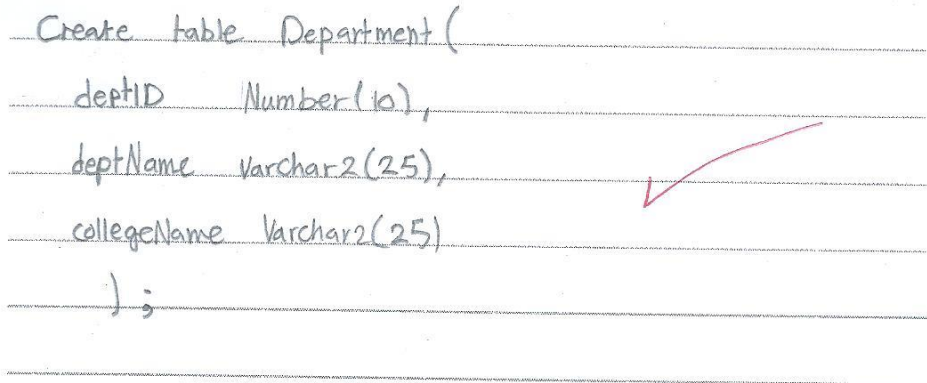 Create table Department (
deptID Number(10),
deptName Varchar2(25),
collegeName Varchar2(25)
) ;